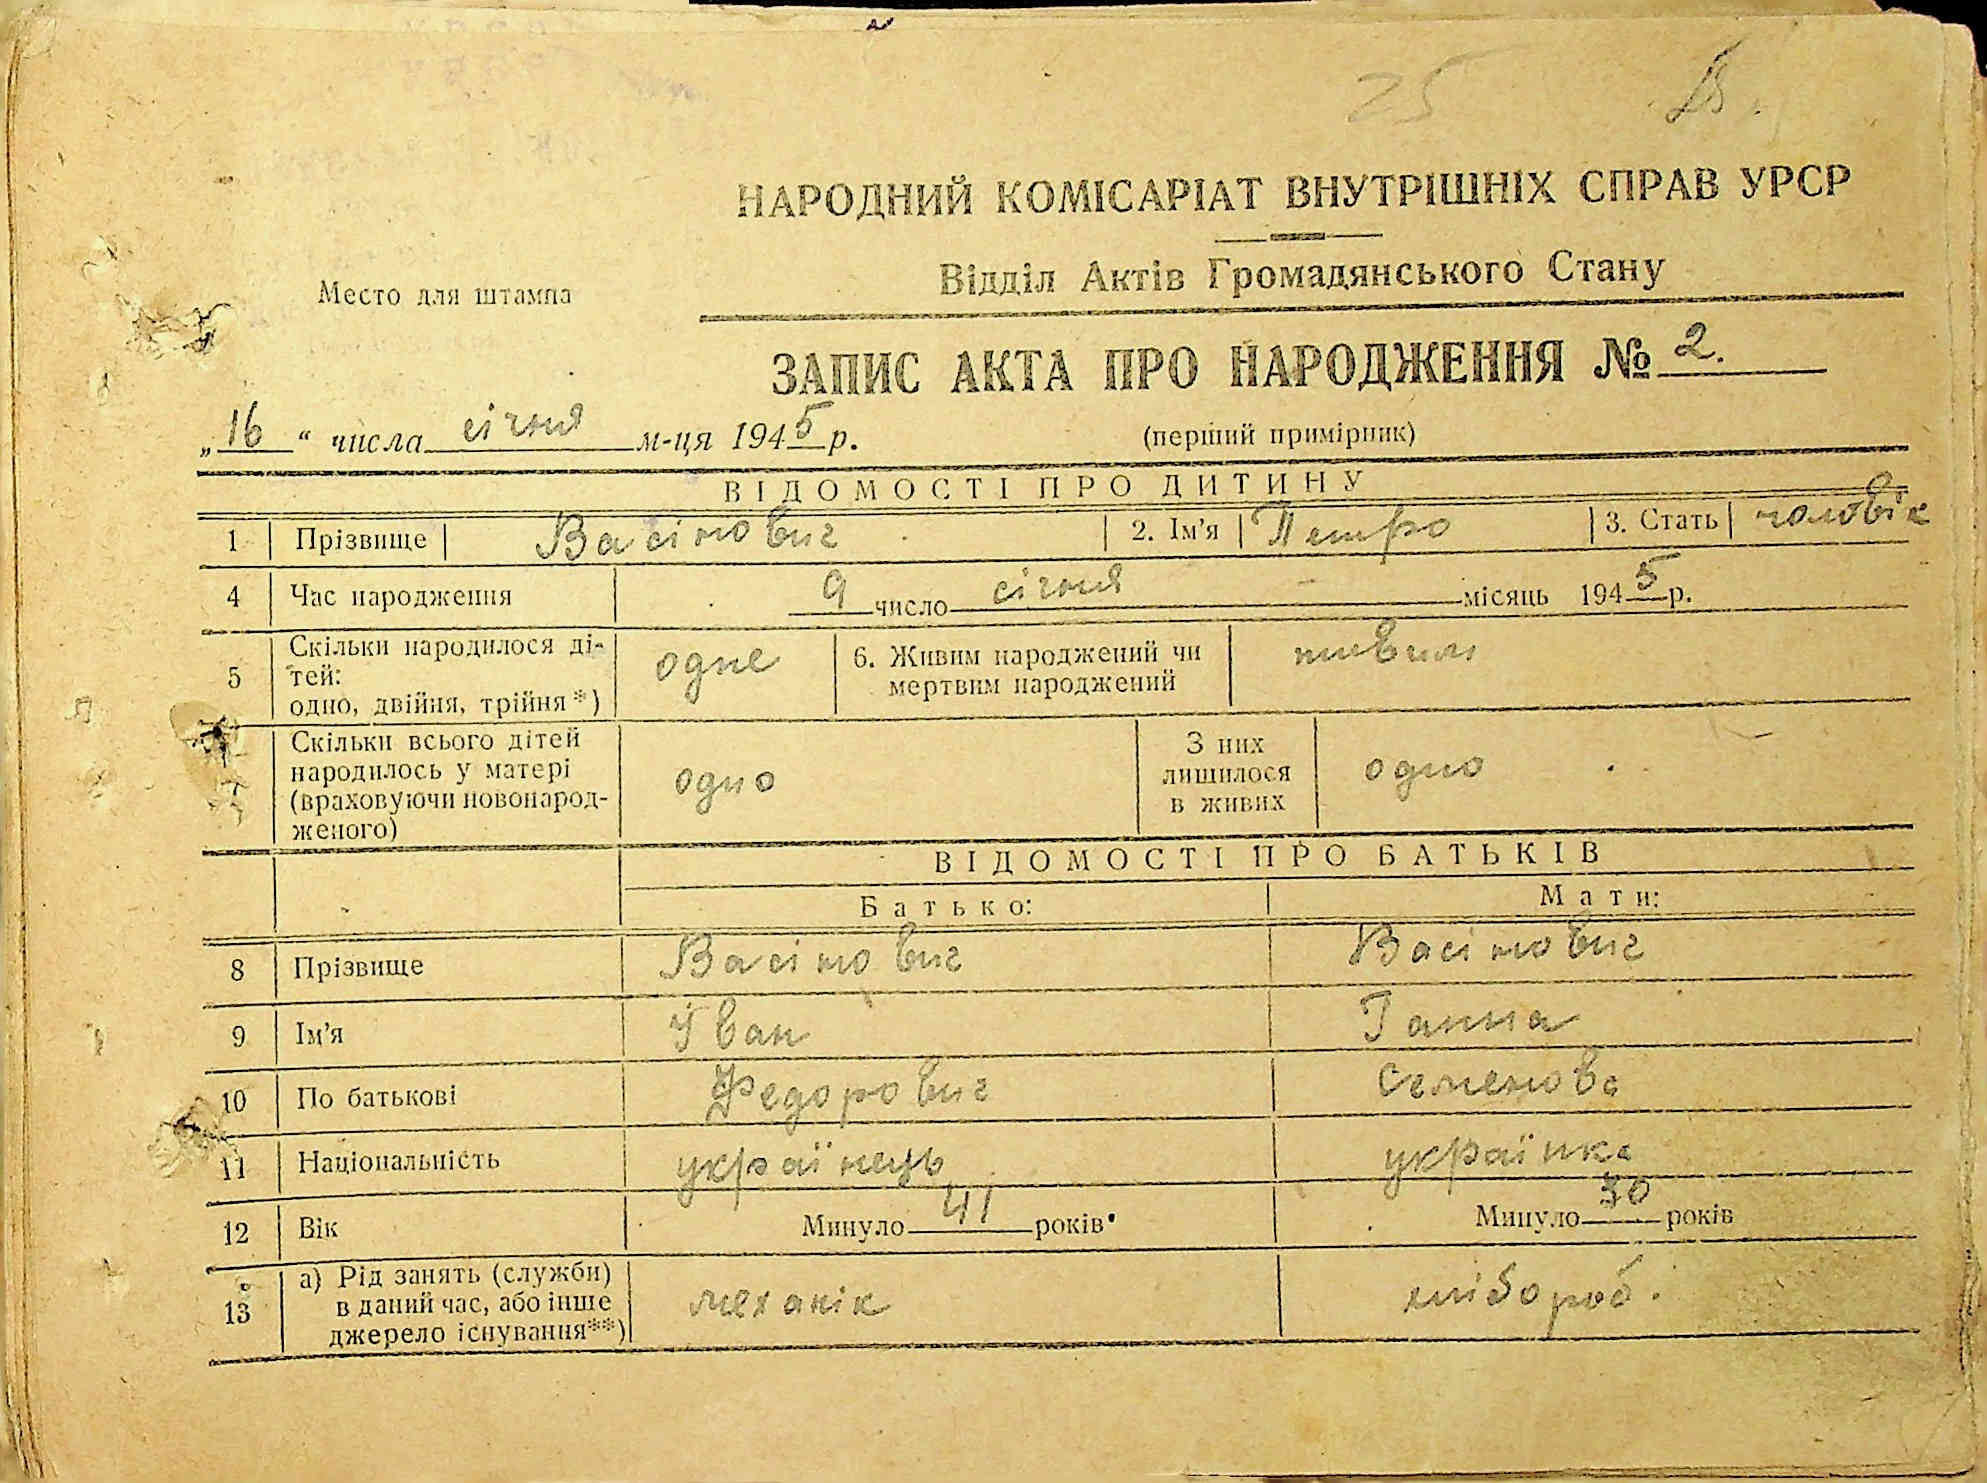 25
НАРОДНИЙ КОМІСАРІАТ ВНУТРІШНІХ СПРАВ УРСР
Место для штампа
Відділ Актів Громадянського Стану
ЗАПИС АКТА ПРО НАРОДЖЕННЯ № 2.
„16“ числа січня м-ця 1945 р.
(перший примірник)
ВІДОМОСТІ ПРО ДИТИНУ
1 Прізвище Васінович 2. Ім’я Петро 3. Стать чоловік
4 Час народження 9 число січня місяць 1945 р.
5 Скільки народилося ді-
тей:
одно, двійня, трійня*) одне
6. Живим народжений чи
мертвим народжений живим
7 Скільки всього дітей
народилось у матері
(враховуючи новонарод-
женого) одно
З них
лишилося
в живих одно
ВІДОМОСТІ ПРО БАТЬКІВ
Батько: Мати:
8 Прізвище Васінович Васінович
9 Ім’я Іван Ганна
10 По батькові Федорович Семенова
11 Національність українець українка
12 Вік Минуло 41 років Минуло 30 років
13 а) Рід занять (служби)
в даний час, або інше
джерело існування**) механік хлібороб.